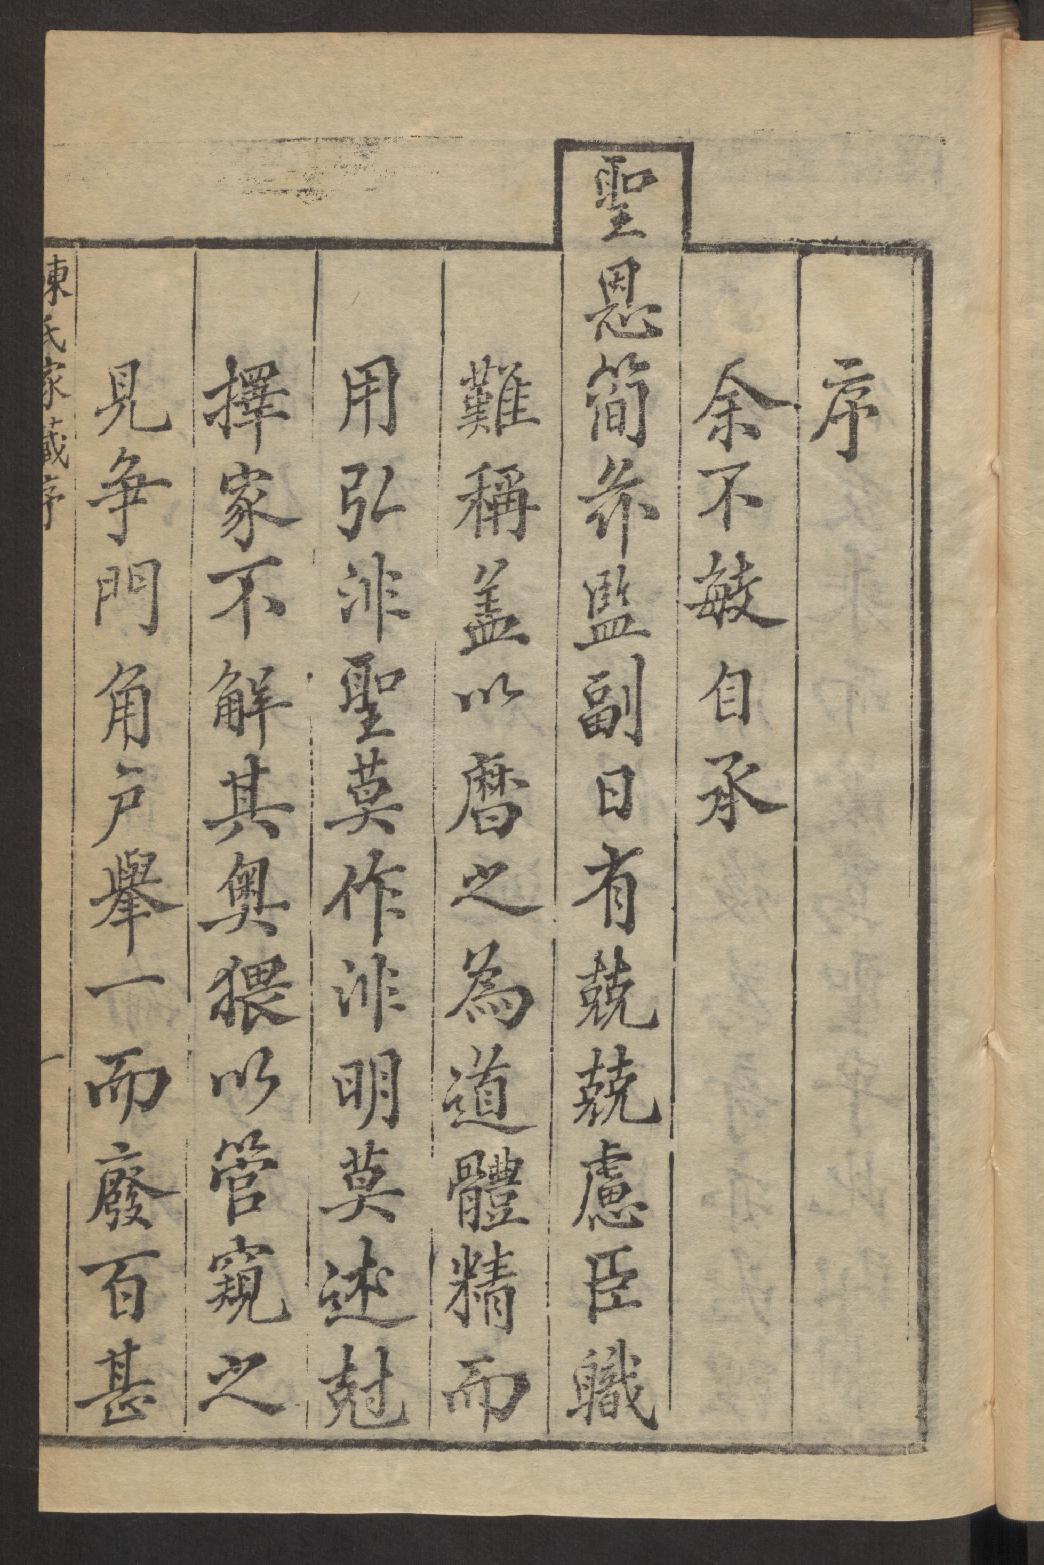 序
余不敏自承
聖恩簡畀監副日有兢兢慮臣職
難稱盖以曆之為道體精而
用弘非聖莫作非明莫述尅
擇家不解其奥猥以管窺之
見争門角戶舉一而廢百甚
陳氏家藏序
一